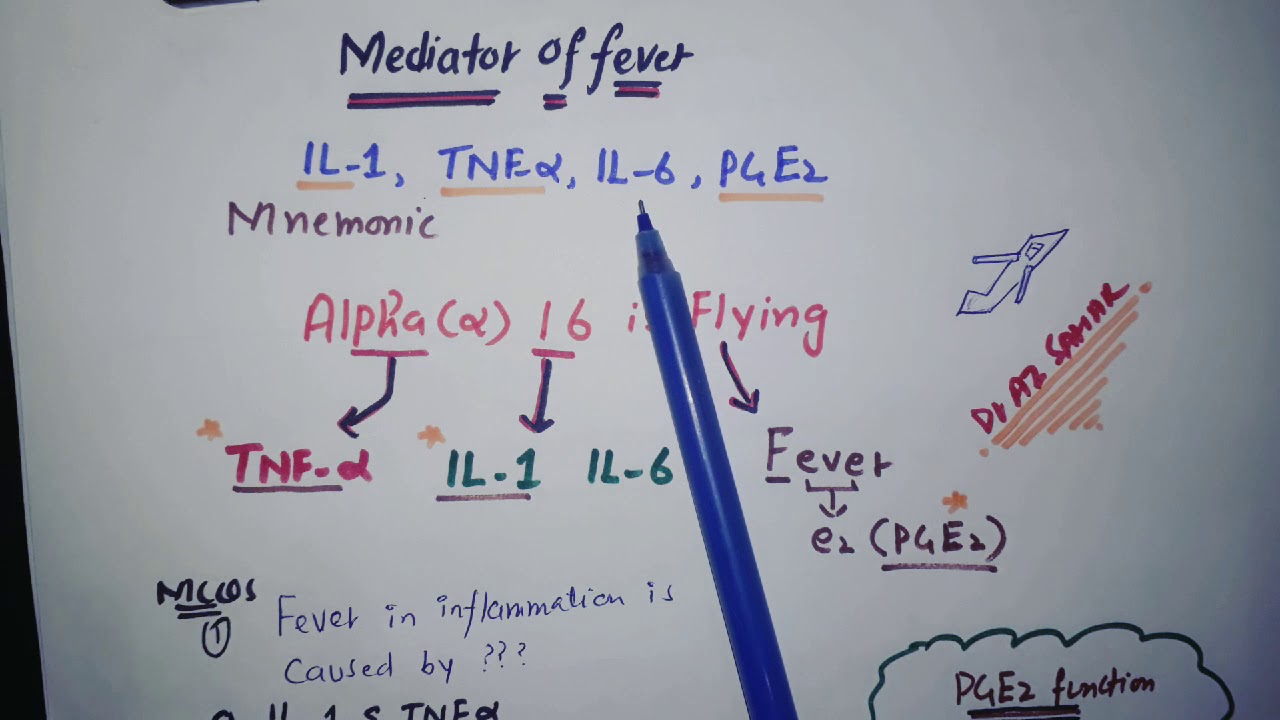 Mediator of fever
IL-1, TNF-α, IL-6, PGE2
Mnemonic
Alpha (α) 16 Flying
Dr AZ SAHAR
TNF-α IL-1 IL-6 Fever
e2 (PGE2)
MCQS
1 Fever in inflammation is
caused by ???
IL-1 & TNFα
PGE2 function